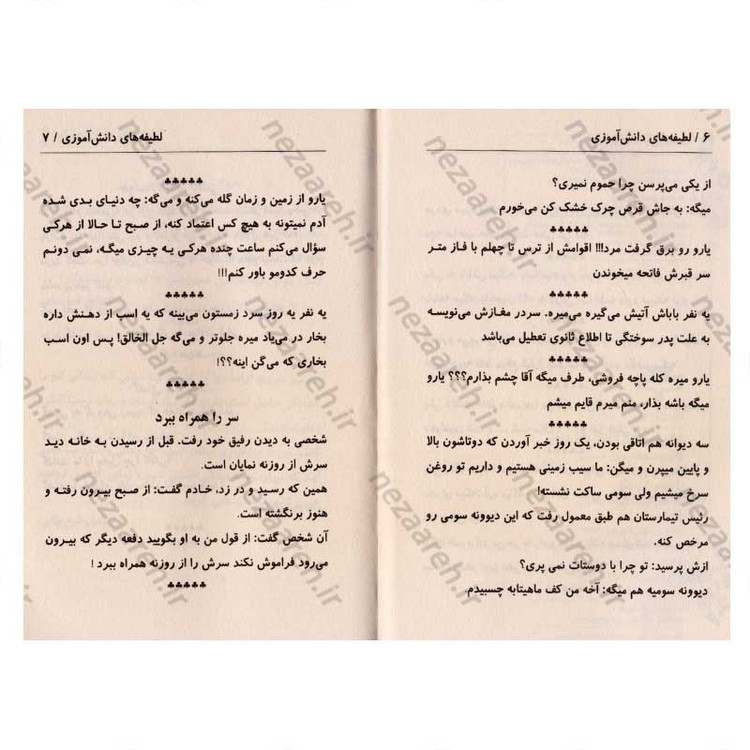 ۶ / لطیفه‌های دانش‌آموزی
از یکی می‌پرسن چرا حموم نمیری؟
میگه: به جاش قرص چرک خشک کن می‌خورم
♣♣♣♣♣
یارو رو برق گرفت مرد!!! اقوامش از ترس تا چهلم با فاز متر
سر قبرش فاتحه میخوندن
♣♣♣♣♣
یه نفر باباش آتیش می‌گیره می‌میره. سردر مغازش می‌نویسه
به علت پدر سوختگی تا اطلاع ثانوی تعطیل می‌باشد
♣♣♣♣♣
یارو میره کله پاچه فروشی، طرف میگه آقا چشم بذارم؟؟؟ یارو
میگه باشه بذار، منم میرم قایم میشم
♣♣♣♣♣
سه دیوانه هم اتاقی بودن، یک روز خبر آوردن که دوتاشون بالا
و پایین میپرن و میگن: ما سیب زمینی هستیم و داریم تو روغن
سرخ میشیم ولی سومی ساکت نشسته!
رئیس تیمارستان هم طبق معمول رفت که این دیوونه سومی رو
مرخص کنه.
ازش پرسید: تو چرا با دوستات نمی پری؟
دیوونه سومیه هم میگه: آخه من کف ماهیتابه چسبیدم
لطیفه‌های دانش‌آموزی / ۷
♣♣♣♣♣
یارو از زمین و زمان گله می‌کنه و می‌گه: چه دنیای بدی شده
آدم نمیتونه به هیچ کس اعتماد کنه، از صبح تا حالا از هرکی
سؤال می‌کنم ساعت چنده هرکی یه چیزی میگه، نمی دونم
حرف کدومو باور کنم!!!
♣♣♣♣♣
یه نفر یه روز سرد زمستون می‌بینه که یه اسب از دهنش داره
بخار در می‌یاد میره جلوتر و می‌گه جل الخالق! پس اون اسب
بخاری که می‌گن اینه؟؟!
♣♣♣♣♣
سر را همراه ببرد
شخصی به دیدن رفیق خود رفت. قبل از رسیدن به خانه دید
سرش از روزنه نمایان است.
همین که رسید و در زد، خادم گفت: از صبح بیرون رفته و
هنوز برنگشته است.
آن شخص گفت: از قول من به او بگویید دفعه دیگر که بیرون
می‌رود فراموش نکند سرش را از روزنه همراه ببرد !
♣♣♣♣♣
nezaareh.ir
nezaareh.ir
nezaareh.ir
nezaareh.ir
nezaareh.ir
nezaareh.ir